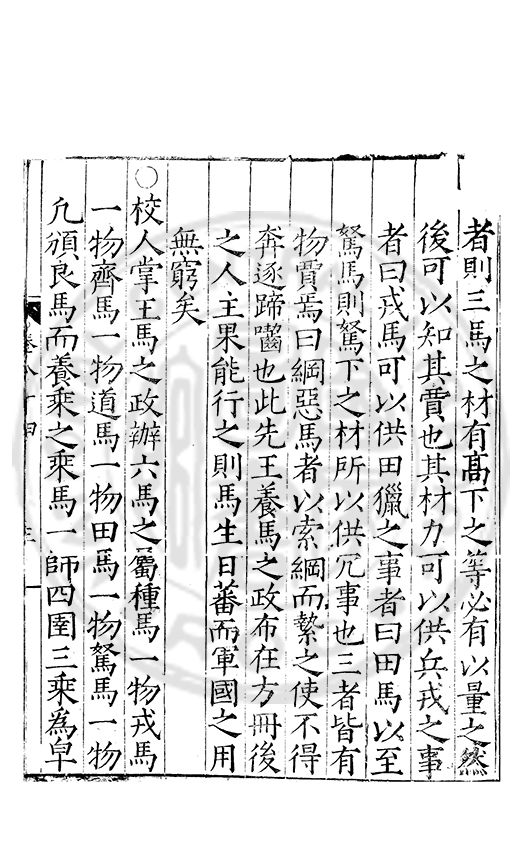 者則三馬之材有高下之等必有以量之然
後可以知其賣也其材力可以供兵戎之事
者曰戎馬可以供田獵之事者曰田馬以至
駑馬則駑下之材所以供冗事也三者皆有
物賈焉曰綱惡馬者以索綱而縶之使不得
奔逐蹄齧也此先王養馬之政布在方冊後
之人主果能行之則馬生日蕃而軍國之用
無窮矣
○校人掌王馬之政辦六馬之屬種馬一物戎馬
一物齊馬一物道馬一物田馬一物駑馬一物
凢頒良馬而養乘之乘馬一師四圉三乘為皁
卷八十四
三